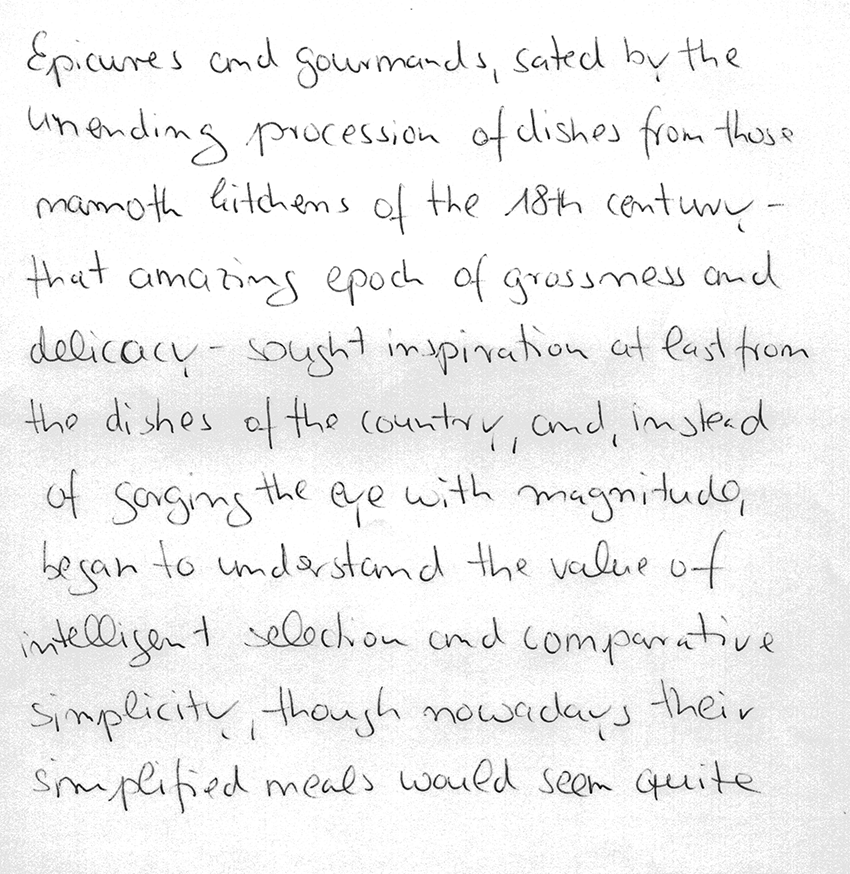 Epicures and gourmands, sated by the
unending procession of dishes from those
mamoth kitchens of the 18th century -
that amazing epoch of grossness and
delicacy - sought inspiration at last from
the dishes of the country, and, instead
of gorging the eye with magnitude,
began to understand the value of
intelligent selection and comparative
simplicity, though nowadays their
simplified meals would seem quite